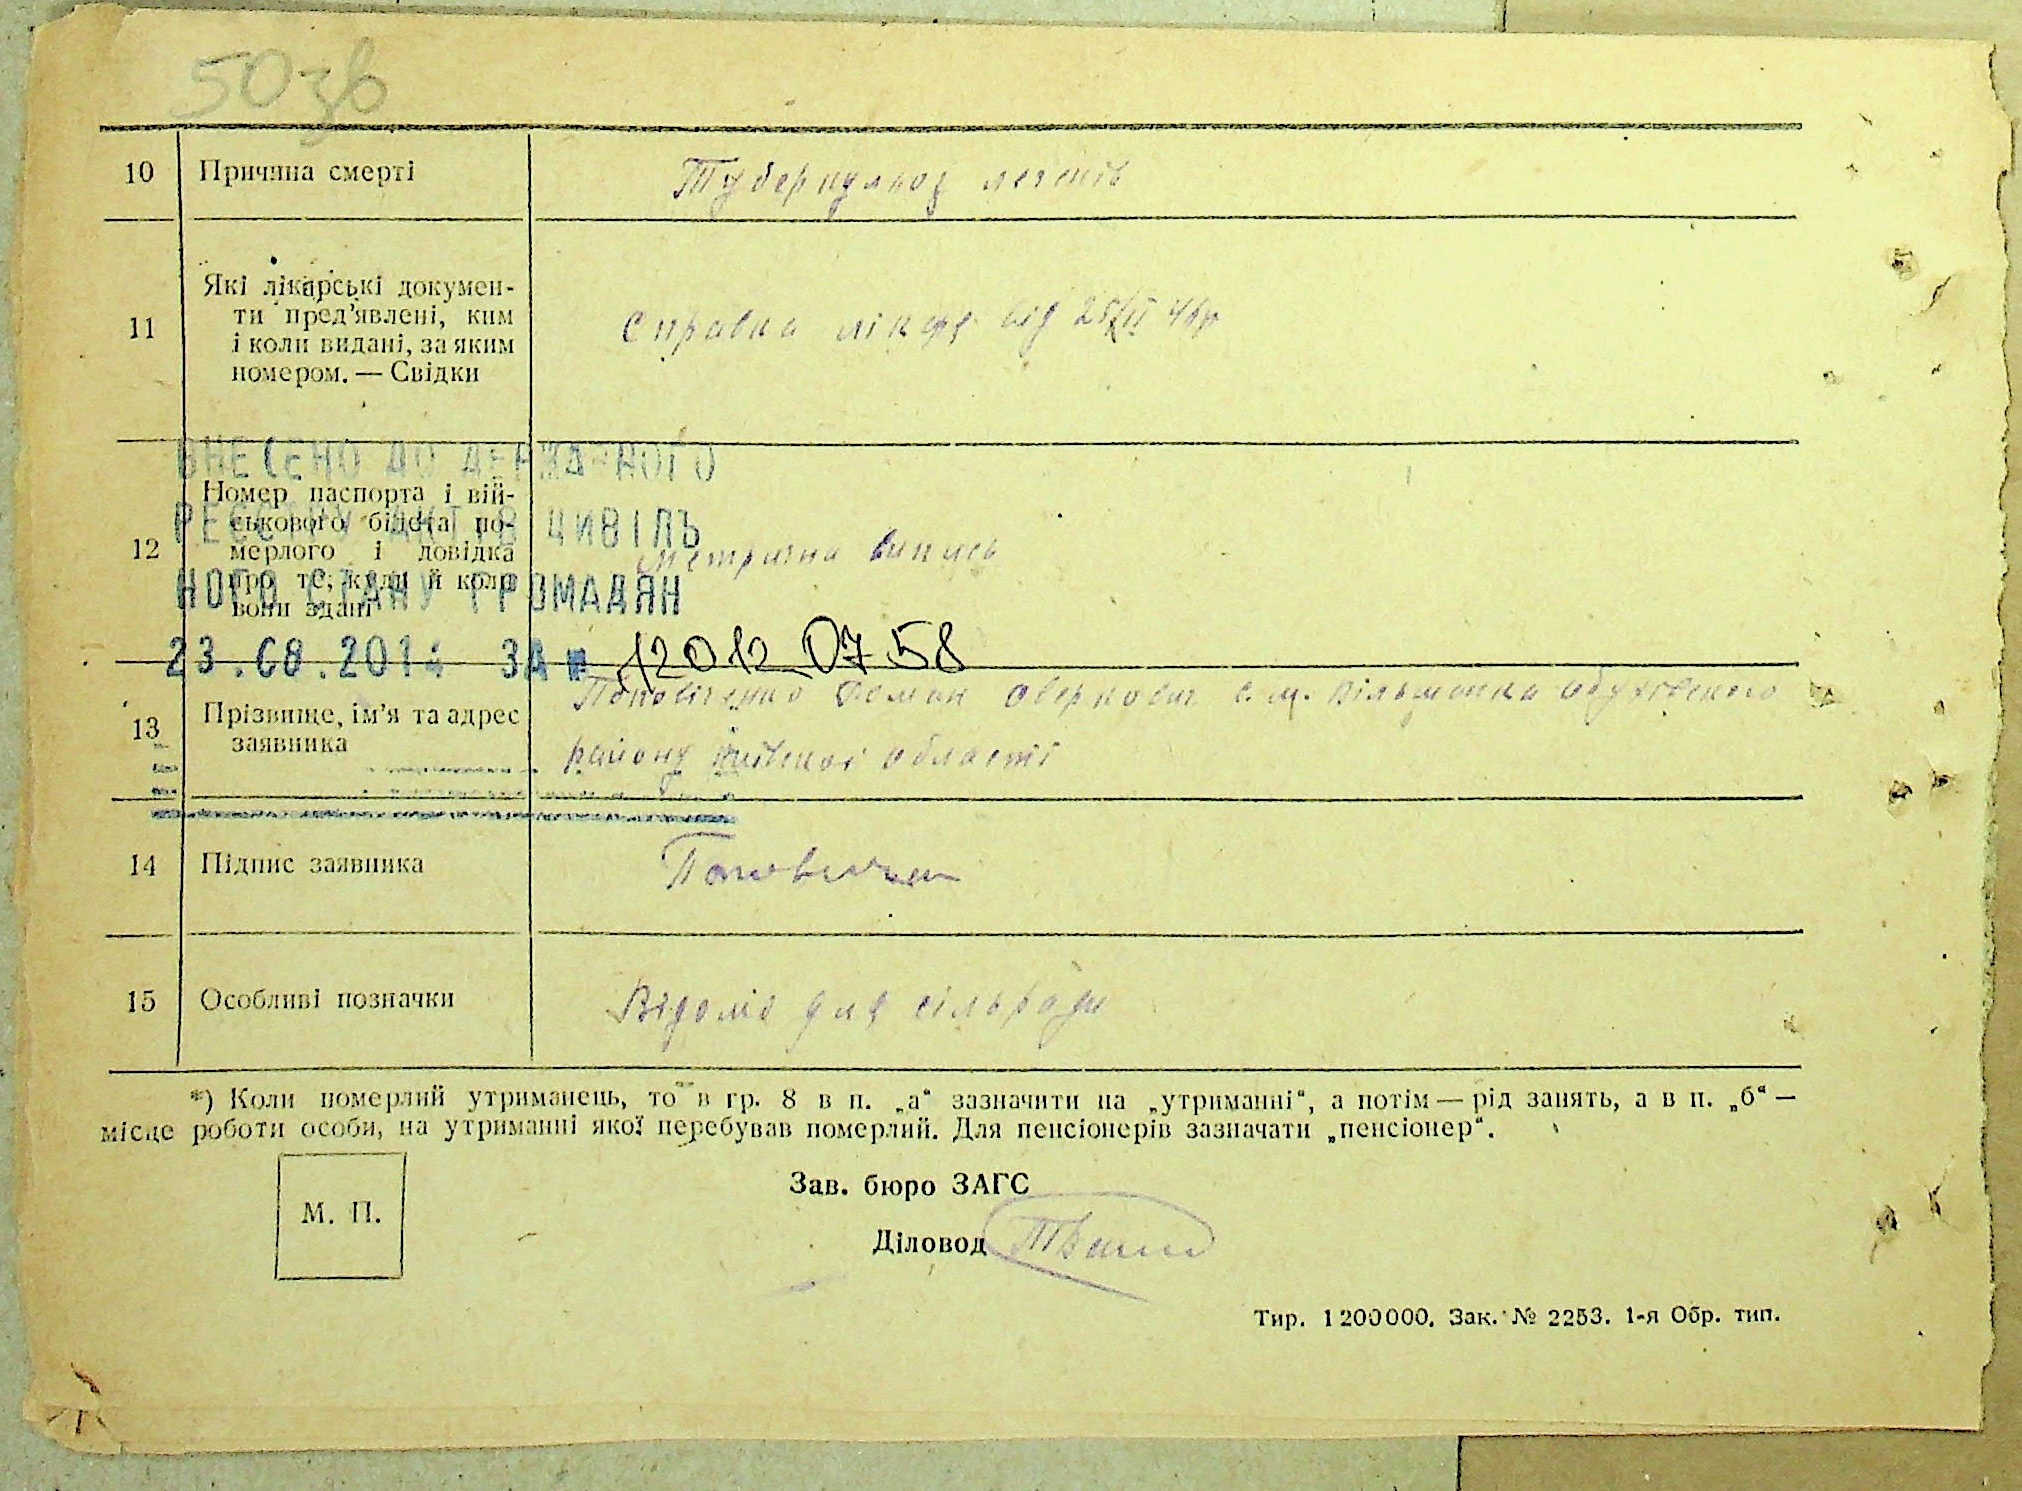 50зв
10 Причина смерті Туберкульоз легенів
11 Які лікарські докумен-
ти пред'явлені, ким
і коли видані, за яким
номером. — Свідки
Справка лікаря від 25/II 46р
ВНЕСЕНО ДО ДЕРЖАВНОГО
РЕЄСТРУ АКТІВ ЦИВІЛЬ
НОГО СТАНУ ГРОМАДЯН
23.08.2014 ЗА № 12012 0758
12 Номер паспорта і вій-
ськового білета по-
мерлого і довідка
про те, куди й коли
вони здані
Метрична випись
13 Прізвище, ім'я та адрес
заявника
Поповіченко Роман Оверкович с. м. Вільшанка Обухівського
району Київської області
14 Підпис заявника
15 Особливі позначки Відомо для сільради
*) Коли померлий утриманець, то в гр. 8 в п. „а“ зазначити на „утриманні“, а потім — рід занять, а в п. „б“ —
місце роботи особи, на утриманні якої перебував померлий. Для пенсіонерів зазначати „пенсіонер“.
М. П.
Зав. бюро ЗАГС
Діловод
Тир. 1200000. Зак. № 2253. 1-я Обр. тип.